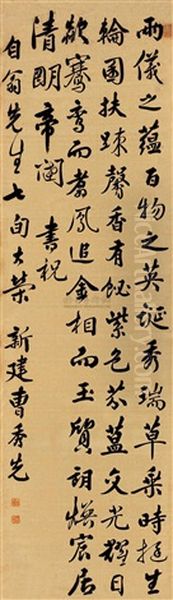 兩儀之蘊百物之英誕秀瑞草乘時挺生
輪囷扶疎馨香有飶紫色芬蒀文光耀日
欲騫鸞而翥鳳追金相而玉質詡煥宸居
清朗帝閫 書祝
自翁先生七旬大榮 新建曹秀先